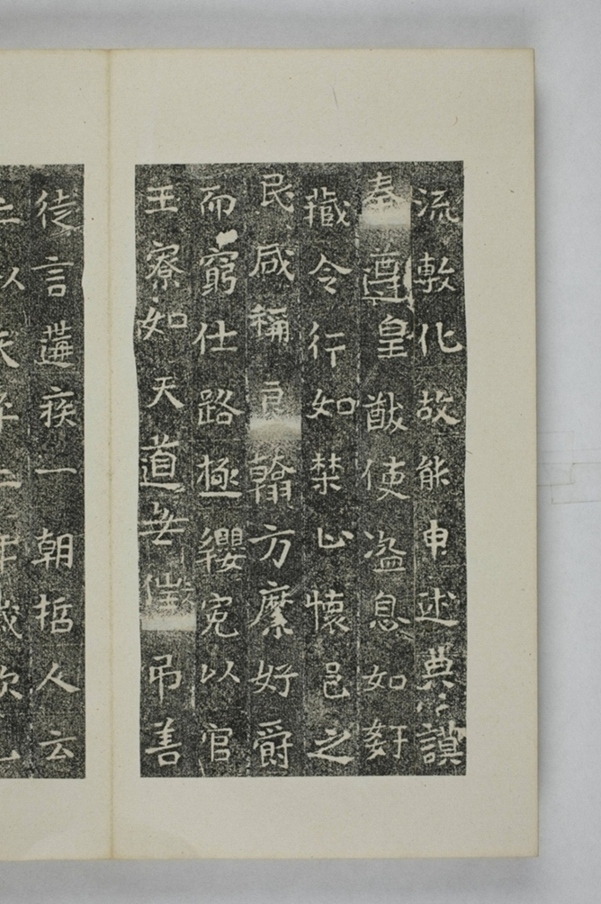 流敷化故能申述典謨
奉遵皇猷使盜息如
藏令行如禁止懷邑之
民咸稱良翰方縻好爵
而窮仕路極纓冕以官
王寮如天道無弔善
徒言遘疾一朝哲人云
亡以天平二年歲次乙